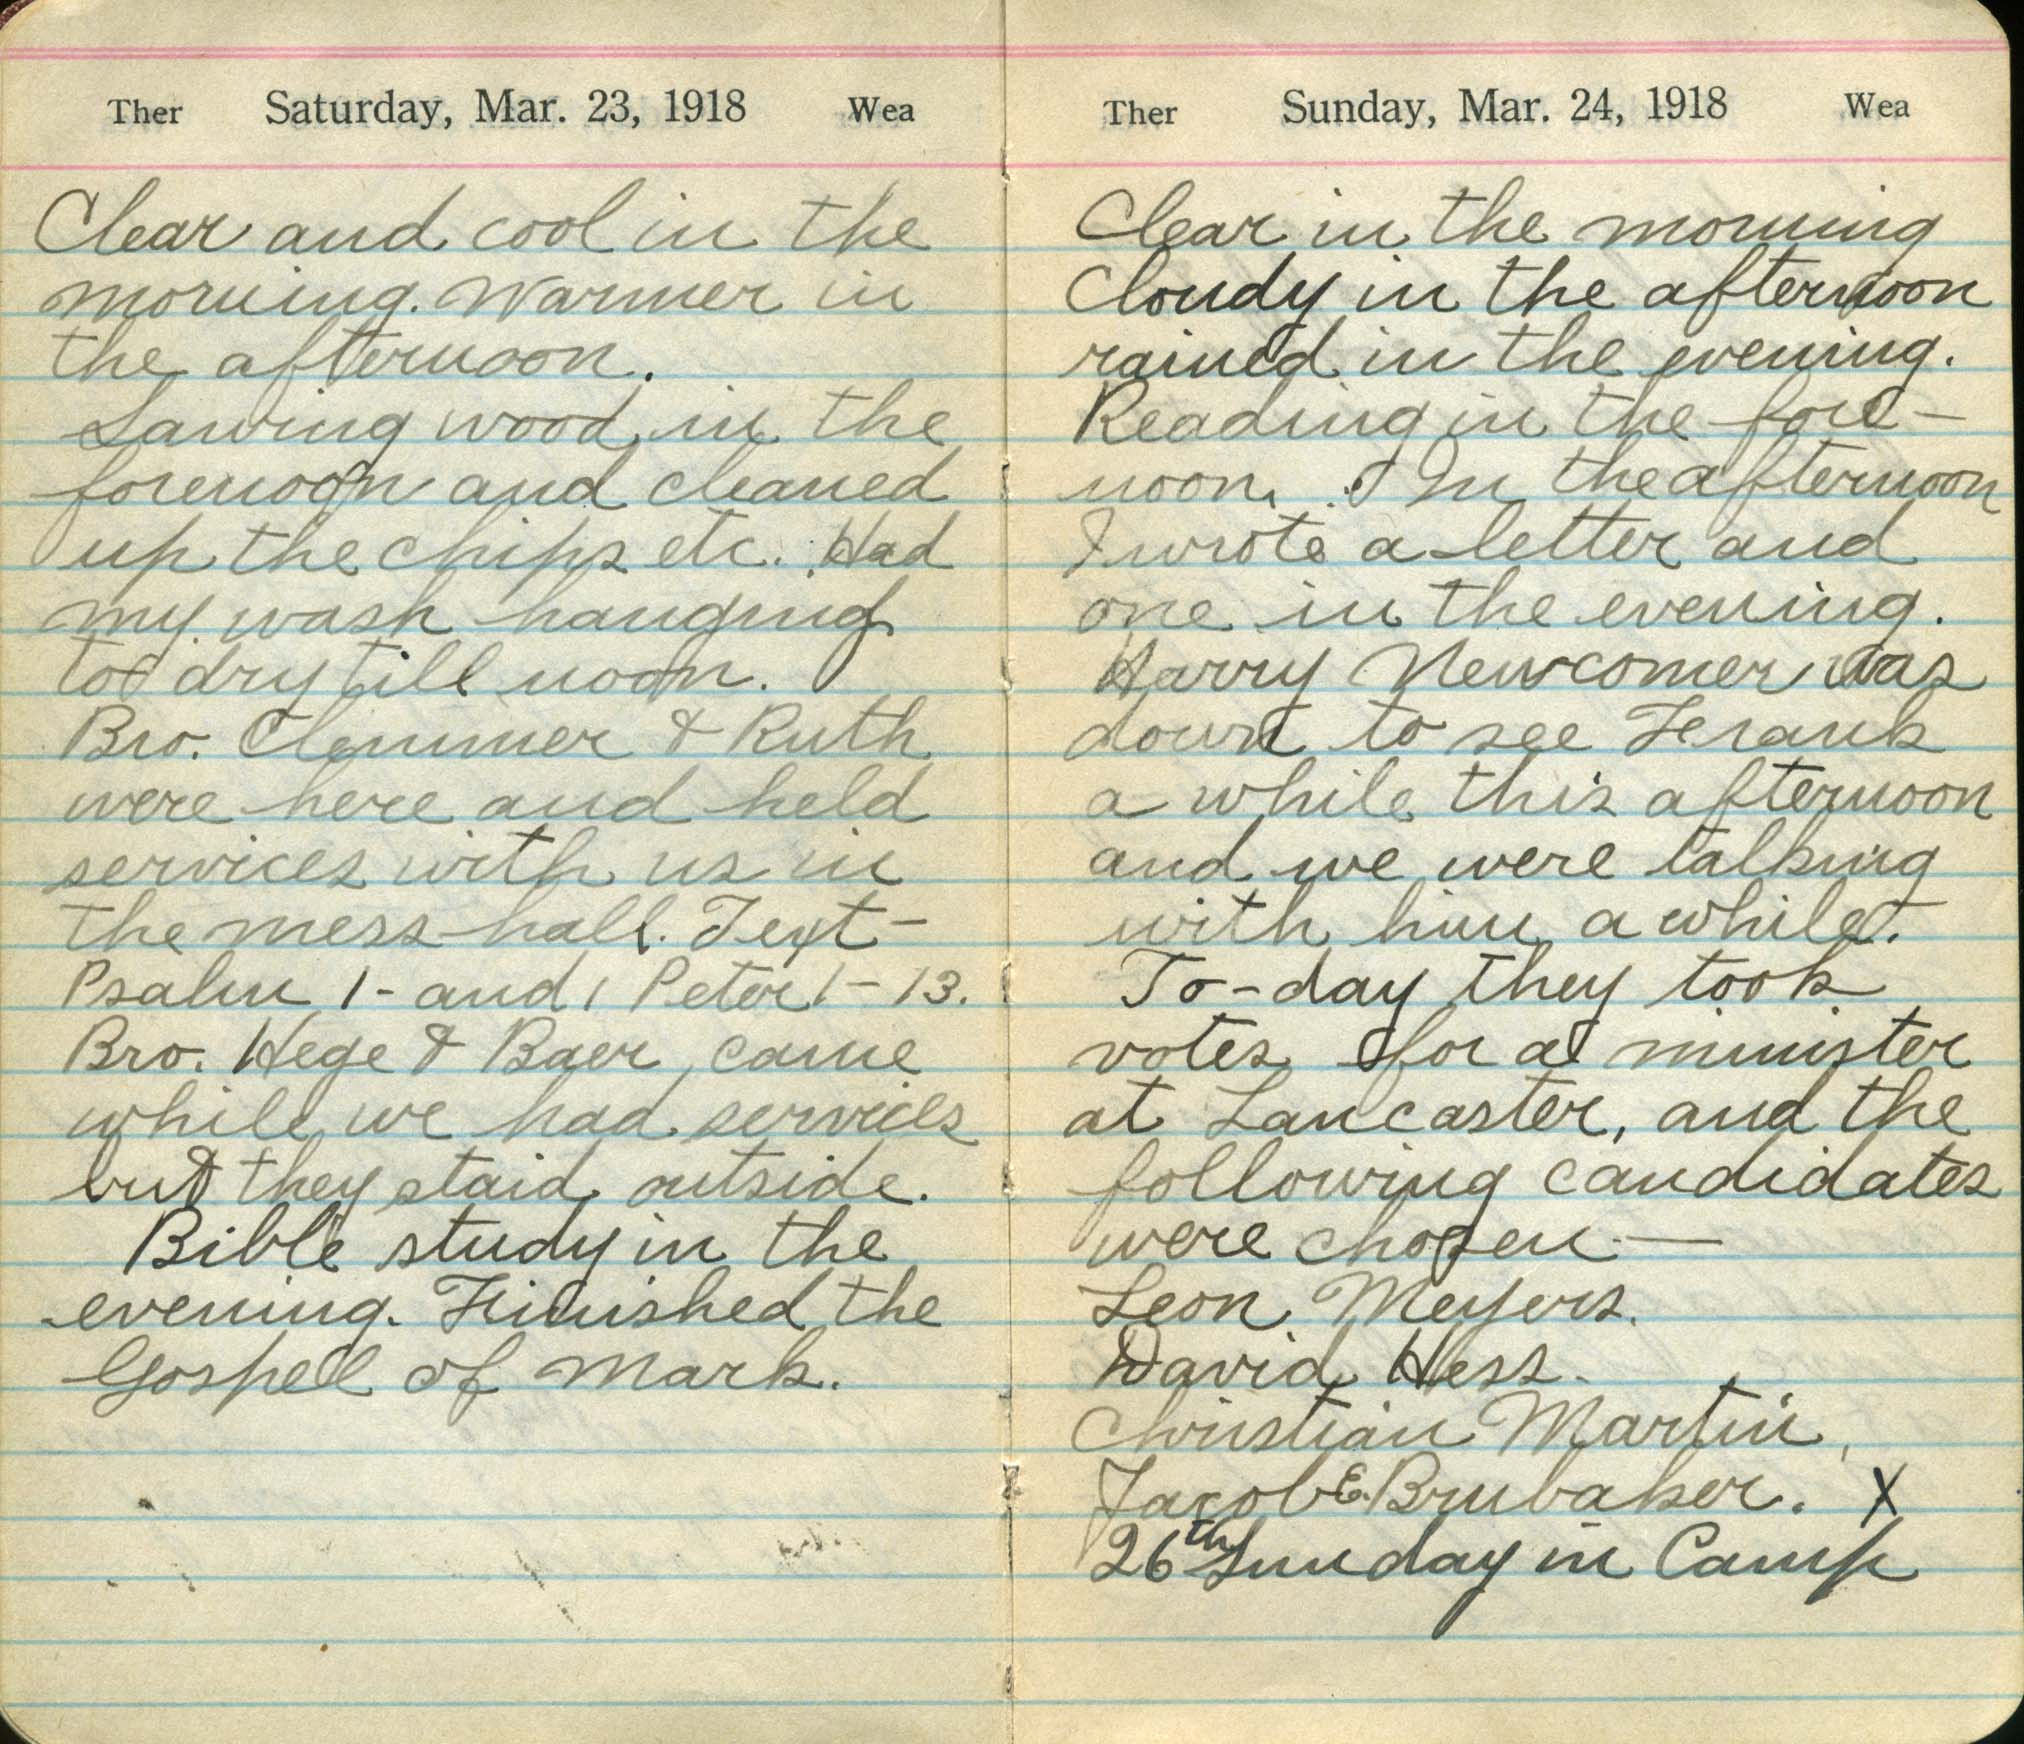 Ther Saturday, Mar. 23, 1918 Wea
Clear and cool in the
morning. Warmer in
the afternoon.
Sawing wood in the
forenoon and cleaned
up the chips etc. Had
my wash hanging
to dry till noon.
Bro. Clemmer & Ruth
were here and held
services with us in
the mess hall. Text-
Psalm 1- and 1 Peter 1-13.
Bro. Hege & Baer came
while we had services
but they staid outside.
Bible study in the
evening. Finished the
Gospel of Mark.
Ther Sunday, Mar. 24, 1918 Wea
Clear in the morning
Cloudy in the afternoon
rained in the evening.
Reading in the fore-
noon. In the afternoon
I wrote a letter and
one in the evening.
Harry Newcomer was
down to see Frank
a while this afternoon
and we were talking
with him a while.
To-day they took
votes for a minister
at Lancaster, and the
following candidates
were chosen —
Leon Meyers.
David Hess.
Christian Martin,
Jacob E. Brubaker. X
26th Sunday in Camp